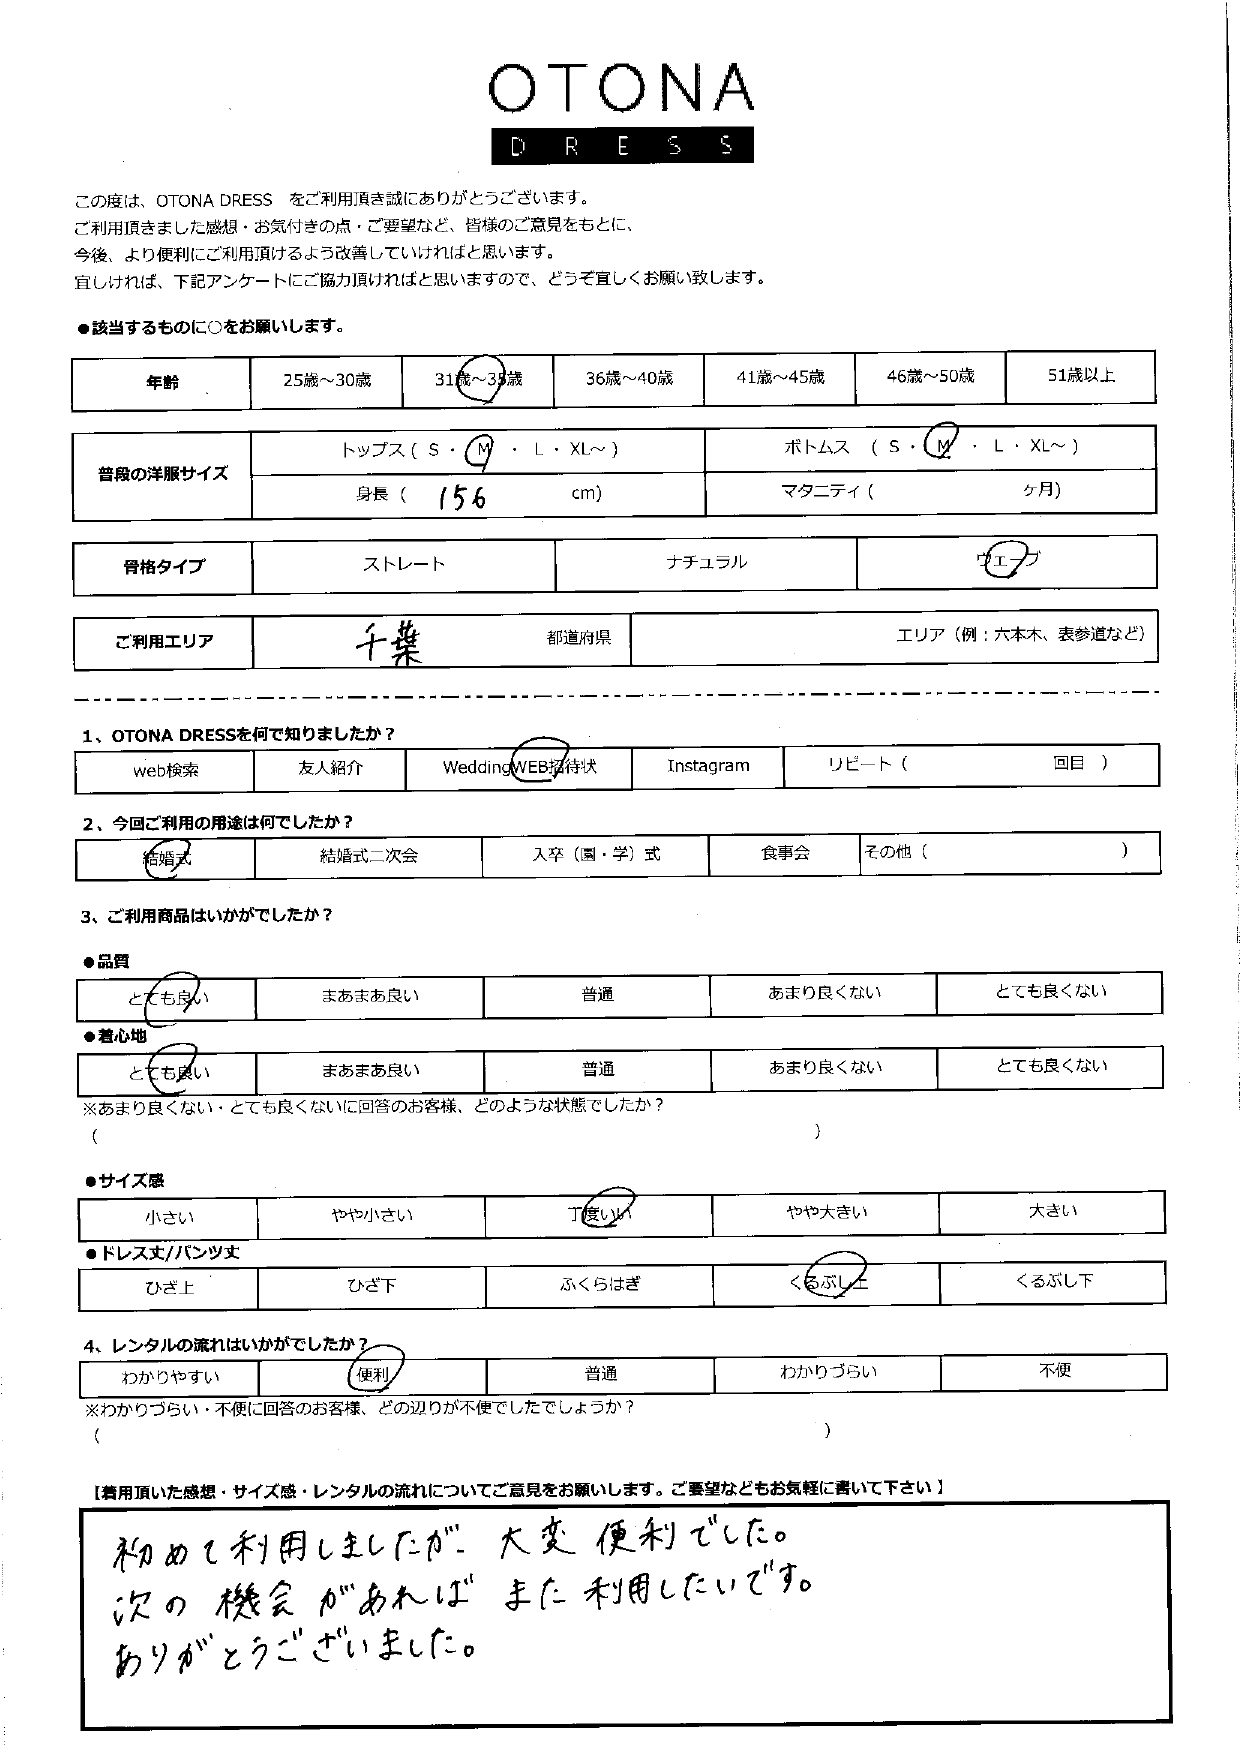 OTONA
DRESS
この度は、OTONA DRESS をご利用頂き誠にありがとうございます。
ご利用頂きました感想・お気付きの点・ご要望など、皆様のご意見をもとに、
今後、より便利にご利用頂けるよう改善していければと思います。
宜しければ、下記アンケートにご協力頂ければと思いますので、どうぞ宜しくお願い致します。
●該当するものに○をお願いします。
年齢 25歳～30歳 31歳～35歳 36歳～40歳 41歳～45歳 46歳～50歳 51歳以上
普段の洋服サイズ トップス ( S ・ M ・ L ・ XL～ ) ボトムス ( S ・ M ・ L ・ XL～ )
身長 ( 156 cm) マタニティ ( ケ月)
骨格タイプ ストレート ナチュラル ウェーブ
ご利用エリア 千葉 都道府県 エリア（例：六本木、表参道など）
1、OTONA DRESSを何で知りましたか？
web検索 友人紹介 WeddingWEB招待状 Instagram リピート（ 回目 ）
2、今回ご利用の用途は何でしたか？
結婚式 結婚式二次会 入卒（園・学）式 食事会 その他（ ）
3、ご利用商品はいかがでしたか？
●品質
とても良い まあまあ良い 普通 あまり良くない とても良くない
●着心地
とても良い まあまあ良い 普通 あまり良くない とても良くない
※あまり良くない・とても良くないに回答のお客様、どのような状態でしたか？
( )
●サイズ感
小さい やや小さい 丁度いい やや大きい 大きい
●ドレス丈/パンツ丈
ひざ上 ひざ下 ふくらはぎ くるぶし上 くるぶし下
4、レンタルの流れはいかがでしたか？
わかりやすい 便利 普通 わかりづらい 不便
※わかりづらい・不便に回答のお客様、どの辺りが不便でしたでしょうか？
( )
【着用頂いた感想・サイズ感・レンタルの流れについてご意見をお願いします。ご要望などもお気軽に書いて下さい】
初めて利用しましたが、大変便利でした。
次の機会があればまた利用したいです。
ありがとうございました。